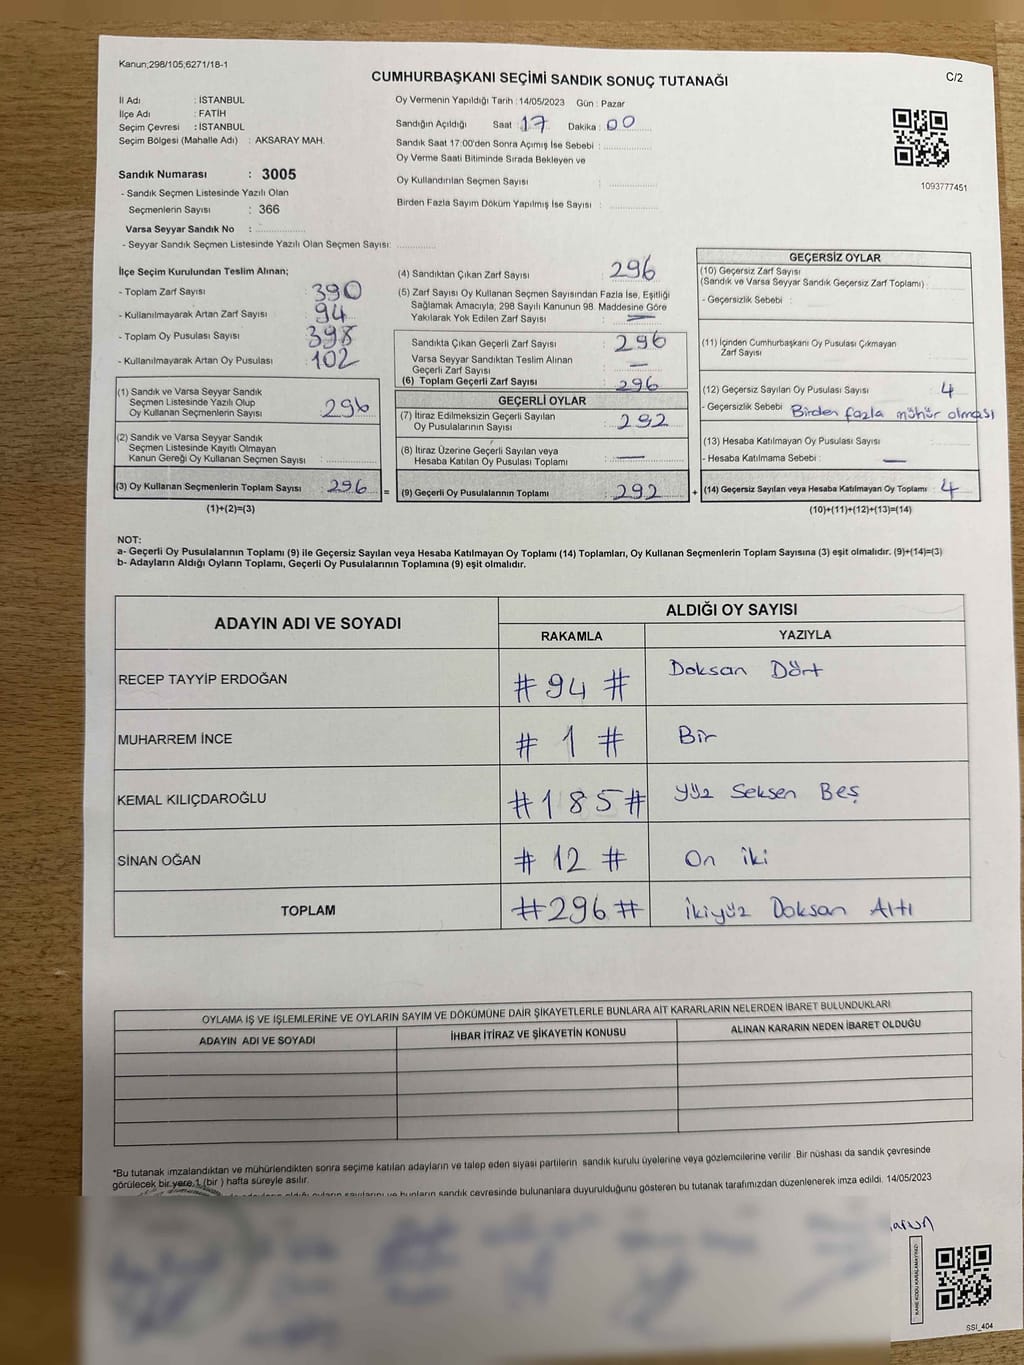 Kanun;298/105;6271/18-1
CUMHURBAŞKANI SEÇİMİ SANDIK SONUÇ TUTANAĞI
C/2
İl Adı : İSTANBUL
İlçe Adı : FATİH
Seçim Çevresi : İSTANBUL
Seçim Bölgesi (Mahalle Adı) : AKSARAY MAH.
Sandık Numarası : 3005
- Sandık Seçmen Listesinde Yazılı Olan
Seçmenlerin Sayısı : 366
Varsa Seyyar Sandık No :
- Seyyar Sandık Seçmen Listesinde Yazılı Olan Seçmen Sayısı:
Oy Vermenin Yapıldığı Tarih : 14/05/2023 Gün : Pazar
Sandığın Açıldığı Saat 17 Dakika : 00
Sandık Saat 17:00'den Sonra Açımış İse Sebebi :
Oy Verme Saati Bitiminde Sırada Bekleyen ve
Oy Kullandırılan Seçmen Sayısı :
Birden Fazla Sayım Döküm Yapılmış İse Sayısı :
1093777451
İlçe Seçim Kurulundan Teslim Alınan;
- Toplam Zarf Sayısı 390
- Kullanılmayarak Artan Zarf Sayısı 94
- Toplam Oy Pusulası Sayısı 398
- Kullanılmayarak Artan Oy Pusulası 102
(1) Sandık ve Varsa Seyyar Sandık
Seçmen Listesinde Yazılı Olup
Oy Kullanan Seçmenlerin Sayısı : 296
(2) Sandık ve Varsa Seyyar Sandık
Seçmen Listesinde Kayıtlı Olmayan
Kanun Gereği Oy Kullanan Seçmen Sayısı :
(3) Oy Kullanan Seçmenlerin Toplam Sayısı : 296 =
(1)+(2)=(3)
(4) Sandıktan Çıkan Zarf Sayısı : 296
(5) Zarf Sayısı Oy Kullanan Seçmen Sayısından Fazla İse, Eşitliği
Sağlamak Amacıyla; 298 Sayılı Kanunun 98. Maddesine Göre
Yakılarak Yok Edilen Zarf Sayısı : —
Sandıkta Çıkan Geçerli Zarf Sayısı : 296
Varsa Seyyar Sandıktan Teslim Alınan
Geçerli Zarf Sayısı : —
(6) Toplam Geçerli Zarf Sayısı : 296
GEÇERLİ OYLAR
(7) İtiraz Edilmeksizin Geçerli Sayılan
Oy Pusulalarının Sayısı : 292
(8) İtiraz Üzerine Geçerli Sayılan veya
Hesaba Katılan Oy Pusulası Toplamı : —
(9) Geçerli Oy Pusulalarının Toplamı : 292 +
GEÇERSİZ OYLAR
(10) Geçersiz Zarf Sayısı
(Sandık ve Varsa Seyyar Sandık Geçersiz Zarf Toplamı) :
- Geçersizlik Sebebi :
(11) İçinden Cumhurbaşkanı Oy Pusulası Çıkmayan
Zarf Sayısı
(12) Geçersiz Sayılan Oy Pusulası Sayısı : 4
- Geçersizlik Sebebi : Birden fazla mühür olması
(13) Hesaba Katılmayan Oy Pusulası Sayısı :
- Hesaba Katılmama Sebebi : —
(14) Geçersiz Sayılan veya Hesaba Katılmayan Oy Toplamı : 4
(10)+(11)+(12)+(13)=(14)
NOT:
a- Geçerli Oy Pusulalarının Toplamı (9) ile Geçersiz Sayılan veya Hesaba Katılmayan Oy Toplamı (14) Toplamları, Oy Kullanan Seçmenlerin Toplam Sayısına (3) eşit olmalıdır. (9)+(14)=(3)
b- Adayların Aldığı Oyların Toplamı, Geçerli Oy Pusulalarının Toplamına (9) eşit olmalıdır.
ADAYIN ADI VE SOYADI
ALDIĞI OY SAYISI
RAKAMLA YAZIYLA
RECEP TAYYİP ERDOĞAN # 94 # Doksan Dört
MUHARREM İNCE # 1 # Bir
KEMAL KILIÇDAROĞLU #185# Yüz Seksen Beş
SİNAN OĞAN # 12 # On iki
TOPLAM #296# ikiyüz Doksan Altı
OYLAMA İŞ VE İŞLEMLERİNE VE OYLARIN SAYIM VE DÖKÜMÜNE DAİR ŞİKAYETLERLE BUNLARA AİT KARARLARIN NELERDEN İBARET BULUNDUKLARI
ADAYIN ADI VE SOYADI İHBAR İTİRAZ VE ŞİKAYETİN KONUSU ALINAN KARARIN NEDEN İBARET OLDUĞU
*Bu tutanak imzalandıktan ve mühürlendikten sonra seçime katılan adayların ve talep eden siyasi partilerin sandık kurulu üyelerine veya gözlemcilerine verilir. Bir nüshası da sandık çevresinde
görülecek bir yere 1 (bir) hafta süreyle asılır.
bunların sandık çevresinde bulunanlara duyurulduğunu gösteren bu tutanak tarafımızdan düzenlenerek imza edildi. 14/05/2023
KARE KODU KARALAMAYINIZ!
SSİ_404